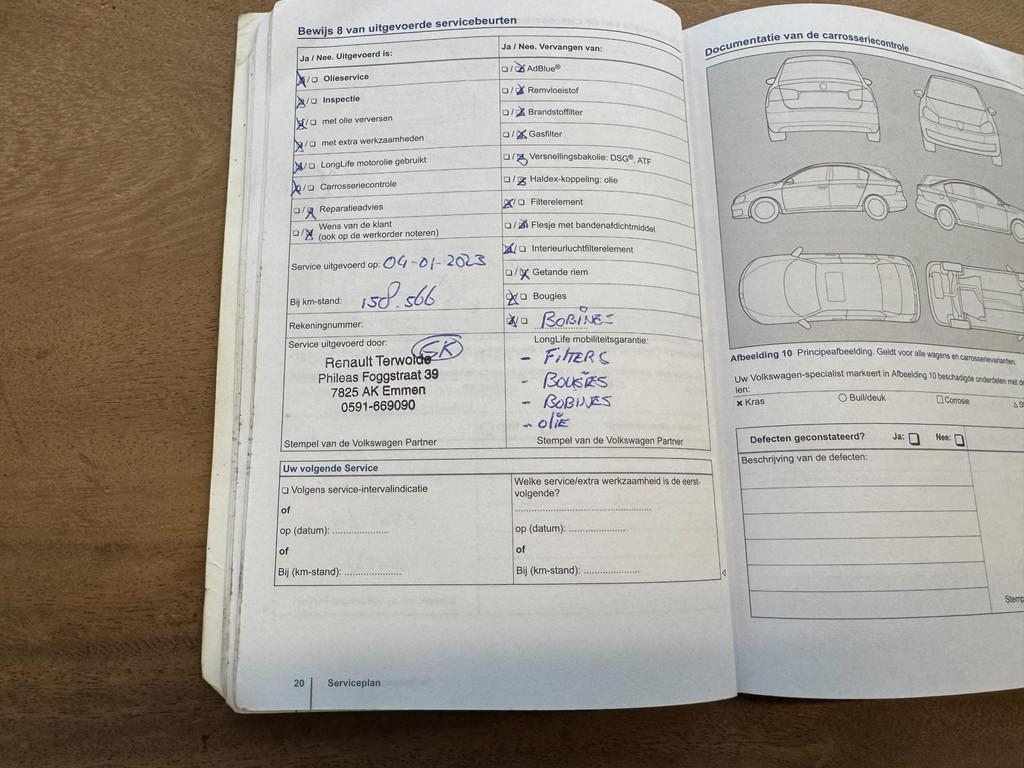 Bewijs 8 van uitgevoerde servicebeurten
Ja / Nee. Uitgevoerd is:
Olieservice
Inspectie
met olie verversen
met extra werkzaamheden
LongLife motorolie gebruikt
Carrosseriecontrole
Reparatieadvies
Wens van de klant
(ook op de werkorder noteren)
Service uitgevoerd op: 04-01-2023
Bij km-stand: 158.566
Rekeningnummer:
Service uitgevoerd door:
Renault Terwolde
Phileas Foggstraat 39
7825 AK Emmen
0591-669090
Stempel van de Volkswagen Partner
Ja / Nee. Vervangen van:
AdBlue®
Remvloeistof
Brandstoffilter
Gasfilter
Versnellingsbakolie: DSG®, ATF
Haldex-koppeling: olie
Filterelement
Flesje met bandenafdichtmiddel
Interieurluchtfilterelement
Getande riem
Bougies
BOBINES
LongLife mobiliteitsgarantie:
- FILTERS
- BOUGIES
- BOBINES
- OLIE
Stempel van de Volkswagen Partner
Uw volgende Service
Volgens service-intervalindicatie
of
op (datum): ....................
of
Bij (km-stand): ....................
Welke service/extra werkzaamheid is de eerst-
volgende?
op (datum): ....................
of
Bij (km-stand): ....................
20 Serviceplan
Documentatie van de carrosseriecontrole
Afbeelding 10 Principeafbeelding. Geldt voor alle wagens en carrosserievarianten.
Uw Volkswagen-specialist markeert in Afbeelding 10 beschadigde onderdelen met de
len:
x Kras
Buil/deuk
Corrosie
Defecten geconstateerd? Ja: Nee:
Beschrijving van de defecten:
Stemp